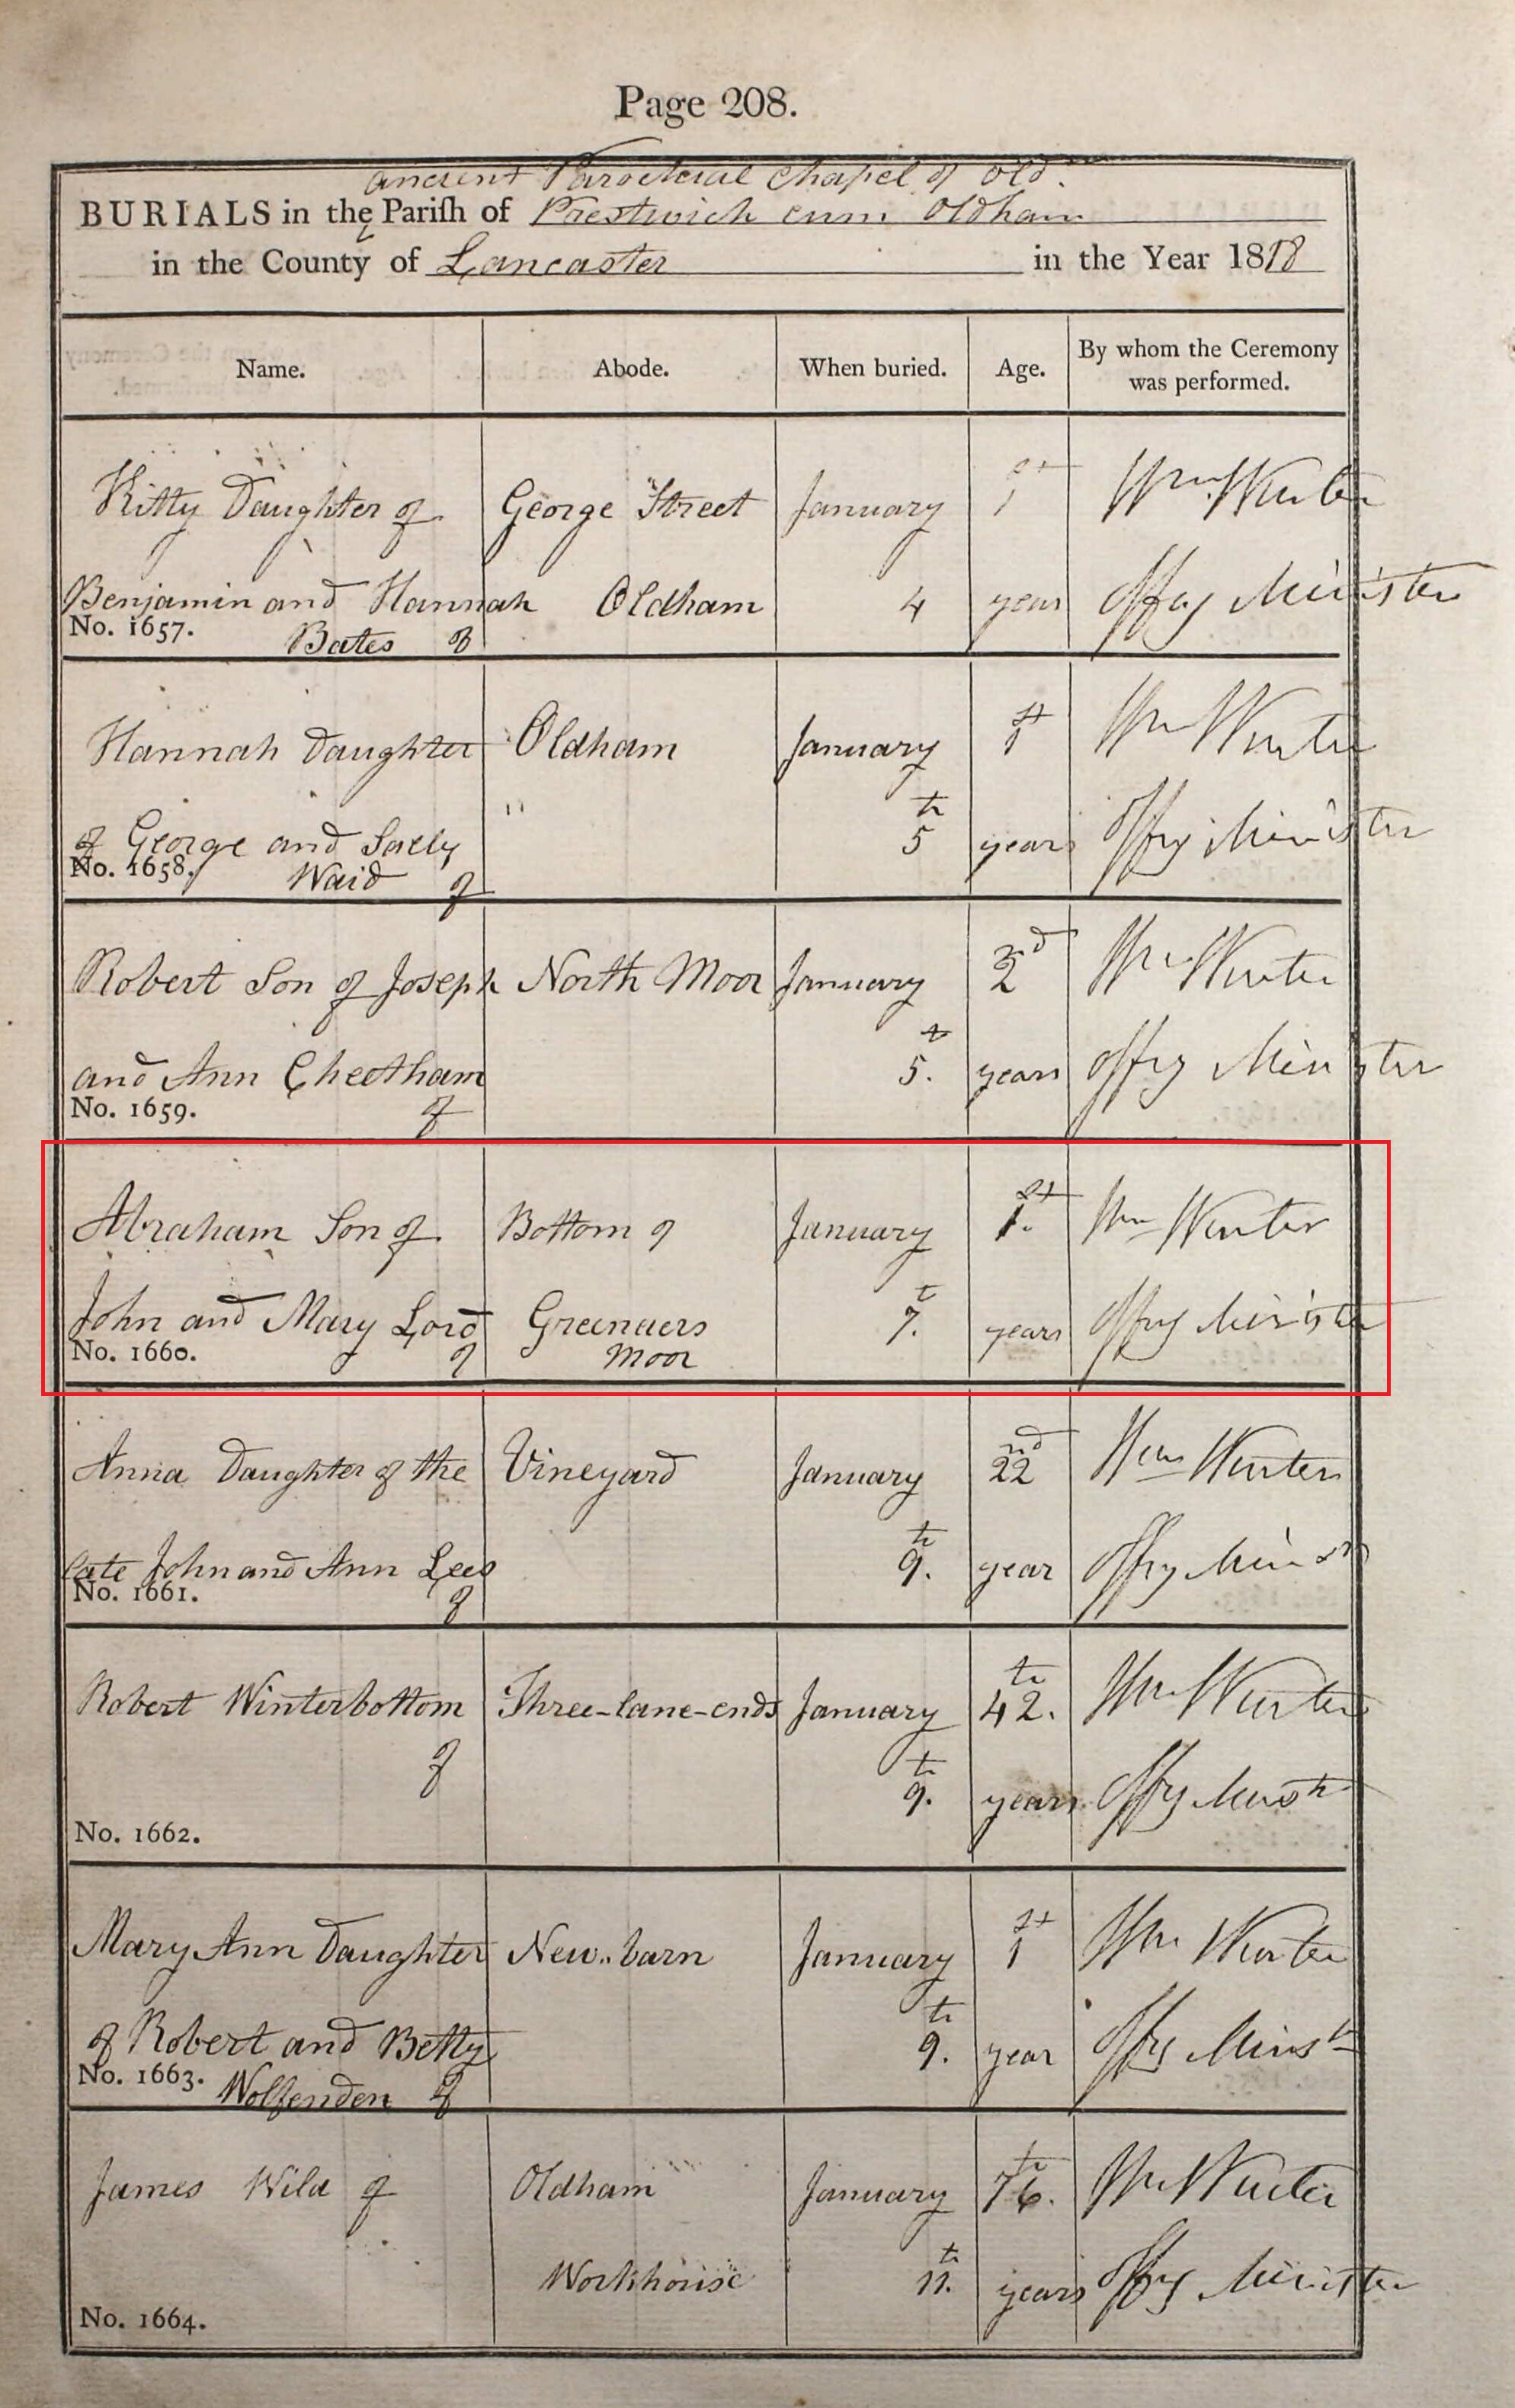 Page 208.
ancient Parochial Chapel of Old.
BURIALS in the Parish of Prestwich cum Oldham
in the County of Lancaster in the Year 1818
Name. Abode. When buried. Age. By whom the Ceremony was performed.
Kitty Daughter of George Street January 1st Wm. Winter
Benjamin and Hannah Oldham 4 years Offg Minister
No. 1657. Bates of
Hannah Daughter Oldham January 1st Wm Winter
of George and Sally " 5th year Offg Minister
No. 1658. Waid of
Robert Son of Joseph North Moor January 2d Wm Winter
and Ann Cheetham 5. years Offg Minister
No. 1659. of
Abraham Son of Bottom of January 1st. Wm Winter
John and Mary Lord Greenacers 7t. years Offg Minister
No. 1660. of Moor
Anna Daughter of the Vineyard January 22nd Wm Winter
late John and Ann Lees 9th. year Offg Minstr
No. 1661. of
Robert Winterbottom Three-lane-ends January 42th. Wm Winter
of 9th. years Offg Minstr
No. 1662.
Mary Ann Daughter New-barn January 1st Wm Winter
of Robert and Betty 9th. year Offg Minstr
No. 1663. Wolfenden of
James Wild of Oldham January 76th. Wm Winter
Workhouse 11th. years Offg Minister
No. 1664.